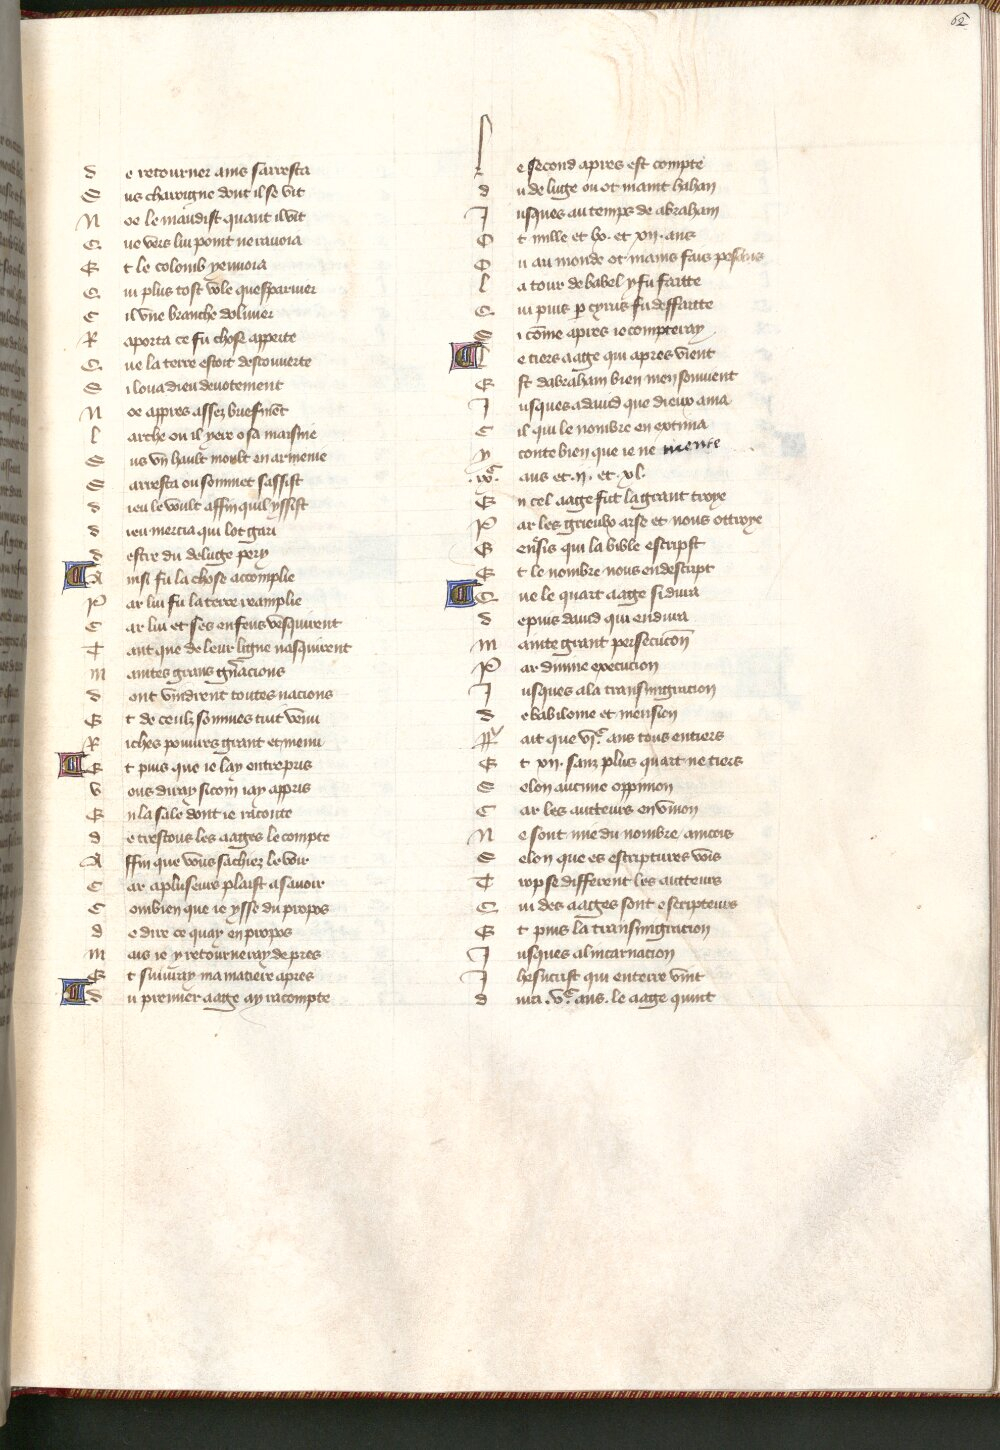 62
De retourner ains sarresta
Sus charoigne dont il se vit
Noe le maudist quant il vit
Que vers lui point ne rauoia
Et le colomb y enuoia
Qui plus tost vole quesparuier
Cil vne branche doliuier
Raporta ce fu chose apperte
Que la terre estoit descouuerte
Si loua dieu deuotement
Noe appres assez briefment
Larche ou il yere o sa maisnie
Sus vn hault moult en armenie
Sarresta ou sommet sassist
dieu le voult affin quil yssist
dieu mercia qui lot gari
destre du deluge pery
Ainsi fu la chose accomplie
Par lui fu la terre raamplie
Car lui et ses enfens vesquirent
Tant que de leur ligne nasquirent
maintes grans gnacions
dont vindrent toutes nacions
Et de ceulz sommes tuit venu
Riches poures grant et menu
Et puis que ie lay entrepris
Vous diray sicom iay appris
En la sale dont ie raconte
de trestous les aages le compte
Affin que vous sachiez le voir
Car a pluseurs plaist a sauoir
Combien que ie ysse du propos
de dire ce quay en propos
mais ie y retourneray de pres
Et suiuray ma matiere apres
Du premier aage ay racompte
Le second apres est compte
du deluge ou ot maint hahan
Jusques au temps de abraham
Ot mille et et xii. ans
Ou au monde ot mains fais pesans
la tour de babel y fu faitte
Qui puis p cyrus fu deffaitte
Si come apres ie compteray
Le tiers aage qui apres vient
Est dabraham bien men souuient
Jusques a dauid que dieux ama
Cil qui le nombre en extima
y conte bien que ie ne mente
ans et .ii. et xl.
En cel aage fut la grant troye
Par les grieux arse et nous ottroye
Et le nombre nous en descript
Que le quart aage si dura
depuis dauid qui endura
mainte grant persecucon
Par diuine execution
Jusques a la transmigracion
de babiloine et mension
Fait que vi.c ans tous entiers
Et xii. sanz plus quart ne tiers
Selon aucune oppinion
Car les autteurs en vnion
Ne sont mie du nombre aincois
Selon que es escriptures vois
Trop se different les autteurs
Qui des aages sont escripteurs
Et puis la transmigracion
Jusques a lincarnacion
Jhesucrist qui en terre vint
dura .v.c ans. le aage quint